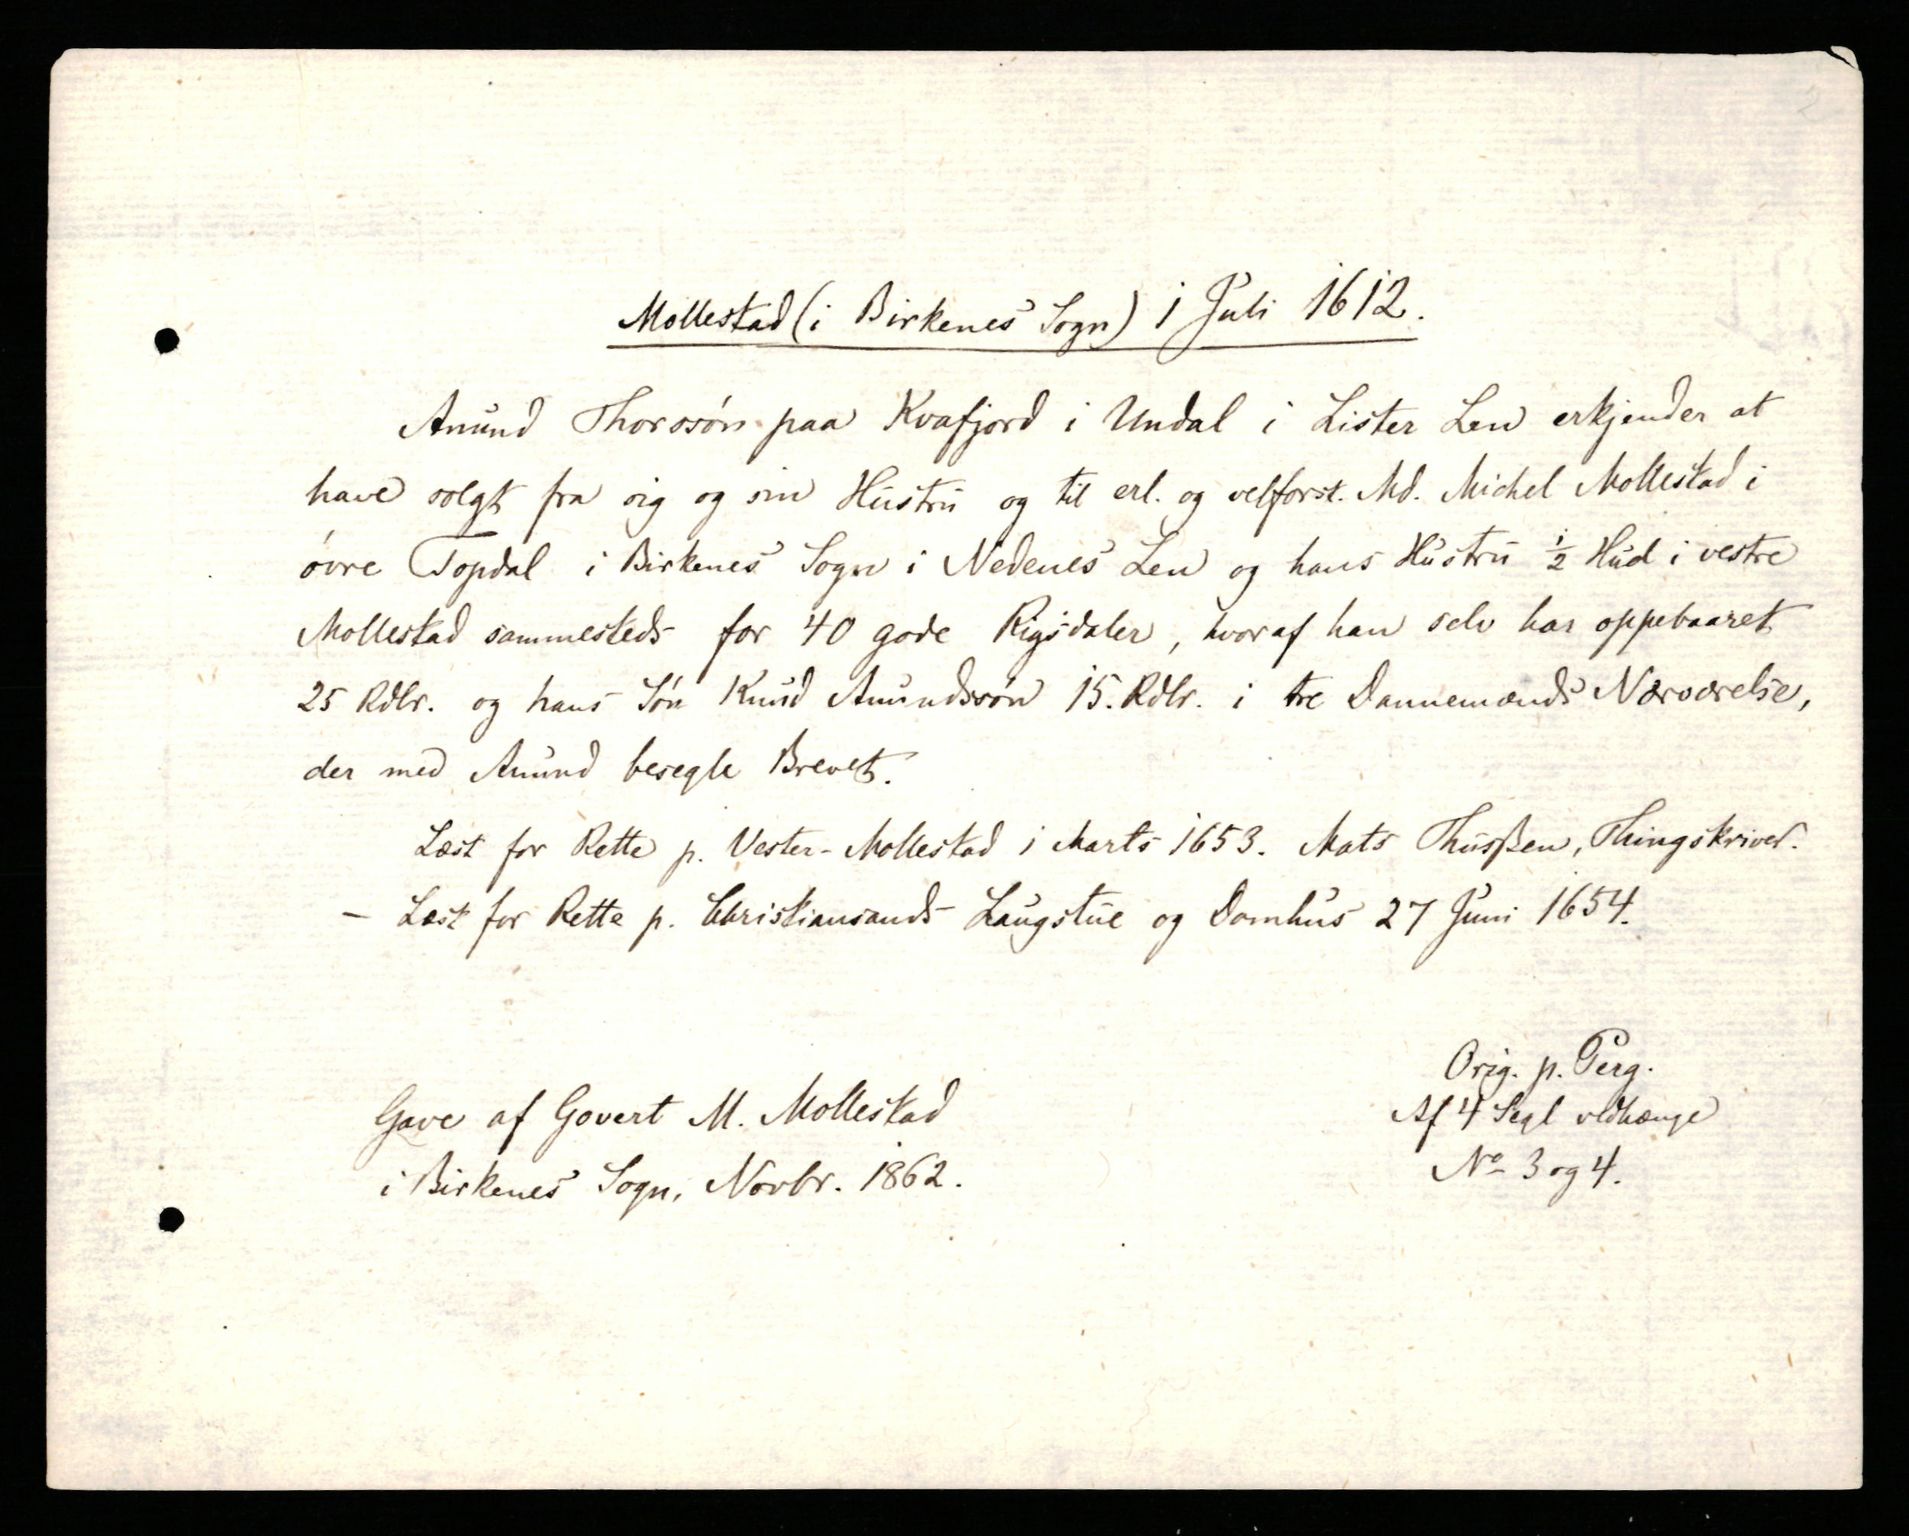 2
Mollestad (i Birkenes Sogn) 1 Juli 1612.
Anund Thorosön paa Kvafjord i Undal i Lister Len erkjender at
have solgt fra sig og sin Hustru og til erl. og velforst. Md. Michel Mollestad i
övre Topdal i Birkenes Sogn i Nedenes Len og hans Hustru ½ Hud i vestre
Mollestad sammesteds for 40 gode Rigsdaler, hvoraf han selv har oppebaaret
25 Rdlr. og hans Sön Knud Anundssön 15. Rdlr. i tre Dannemænds Nærværelse,
der med Anund besegle Brevet.
Læst for Rette p. Vester-Mollestad 1 Marts 1653. Mats Thusßen, Thingskriver.
– Læst for Rette p. Christiansands Laugstue og Domhus 27 Juni 1654.
Orig. p. Perg.
Af 4 Segl vedhænge
No 3 og 4.
Gave af Govert M. Mollestad
i Birkenes Sogn, Novbr. 1862.